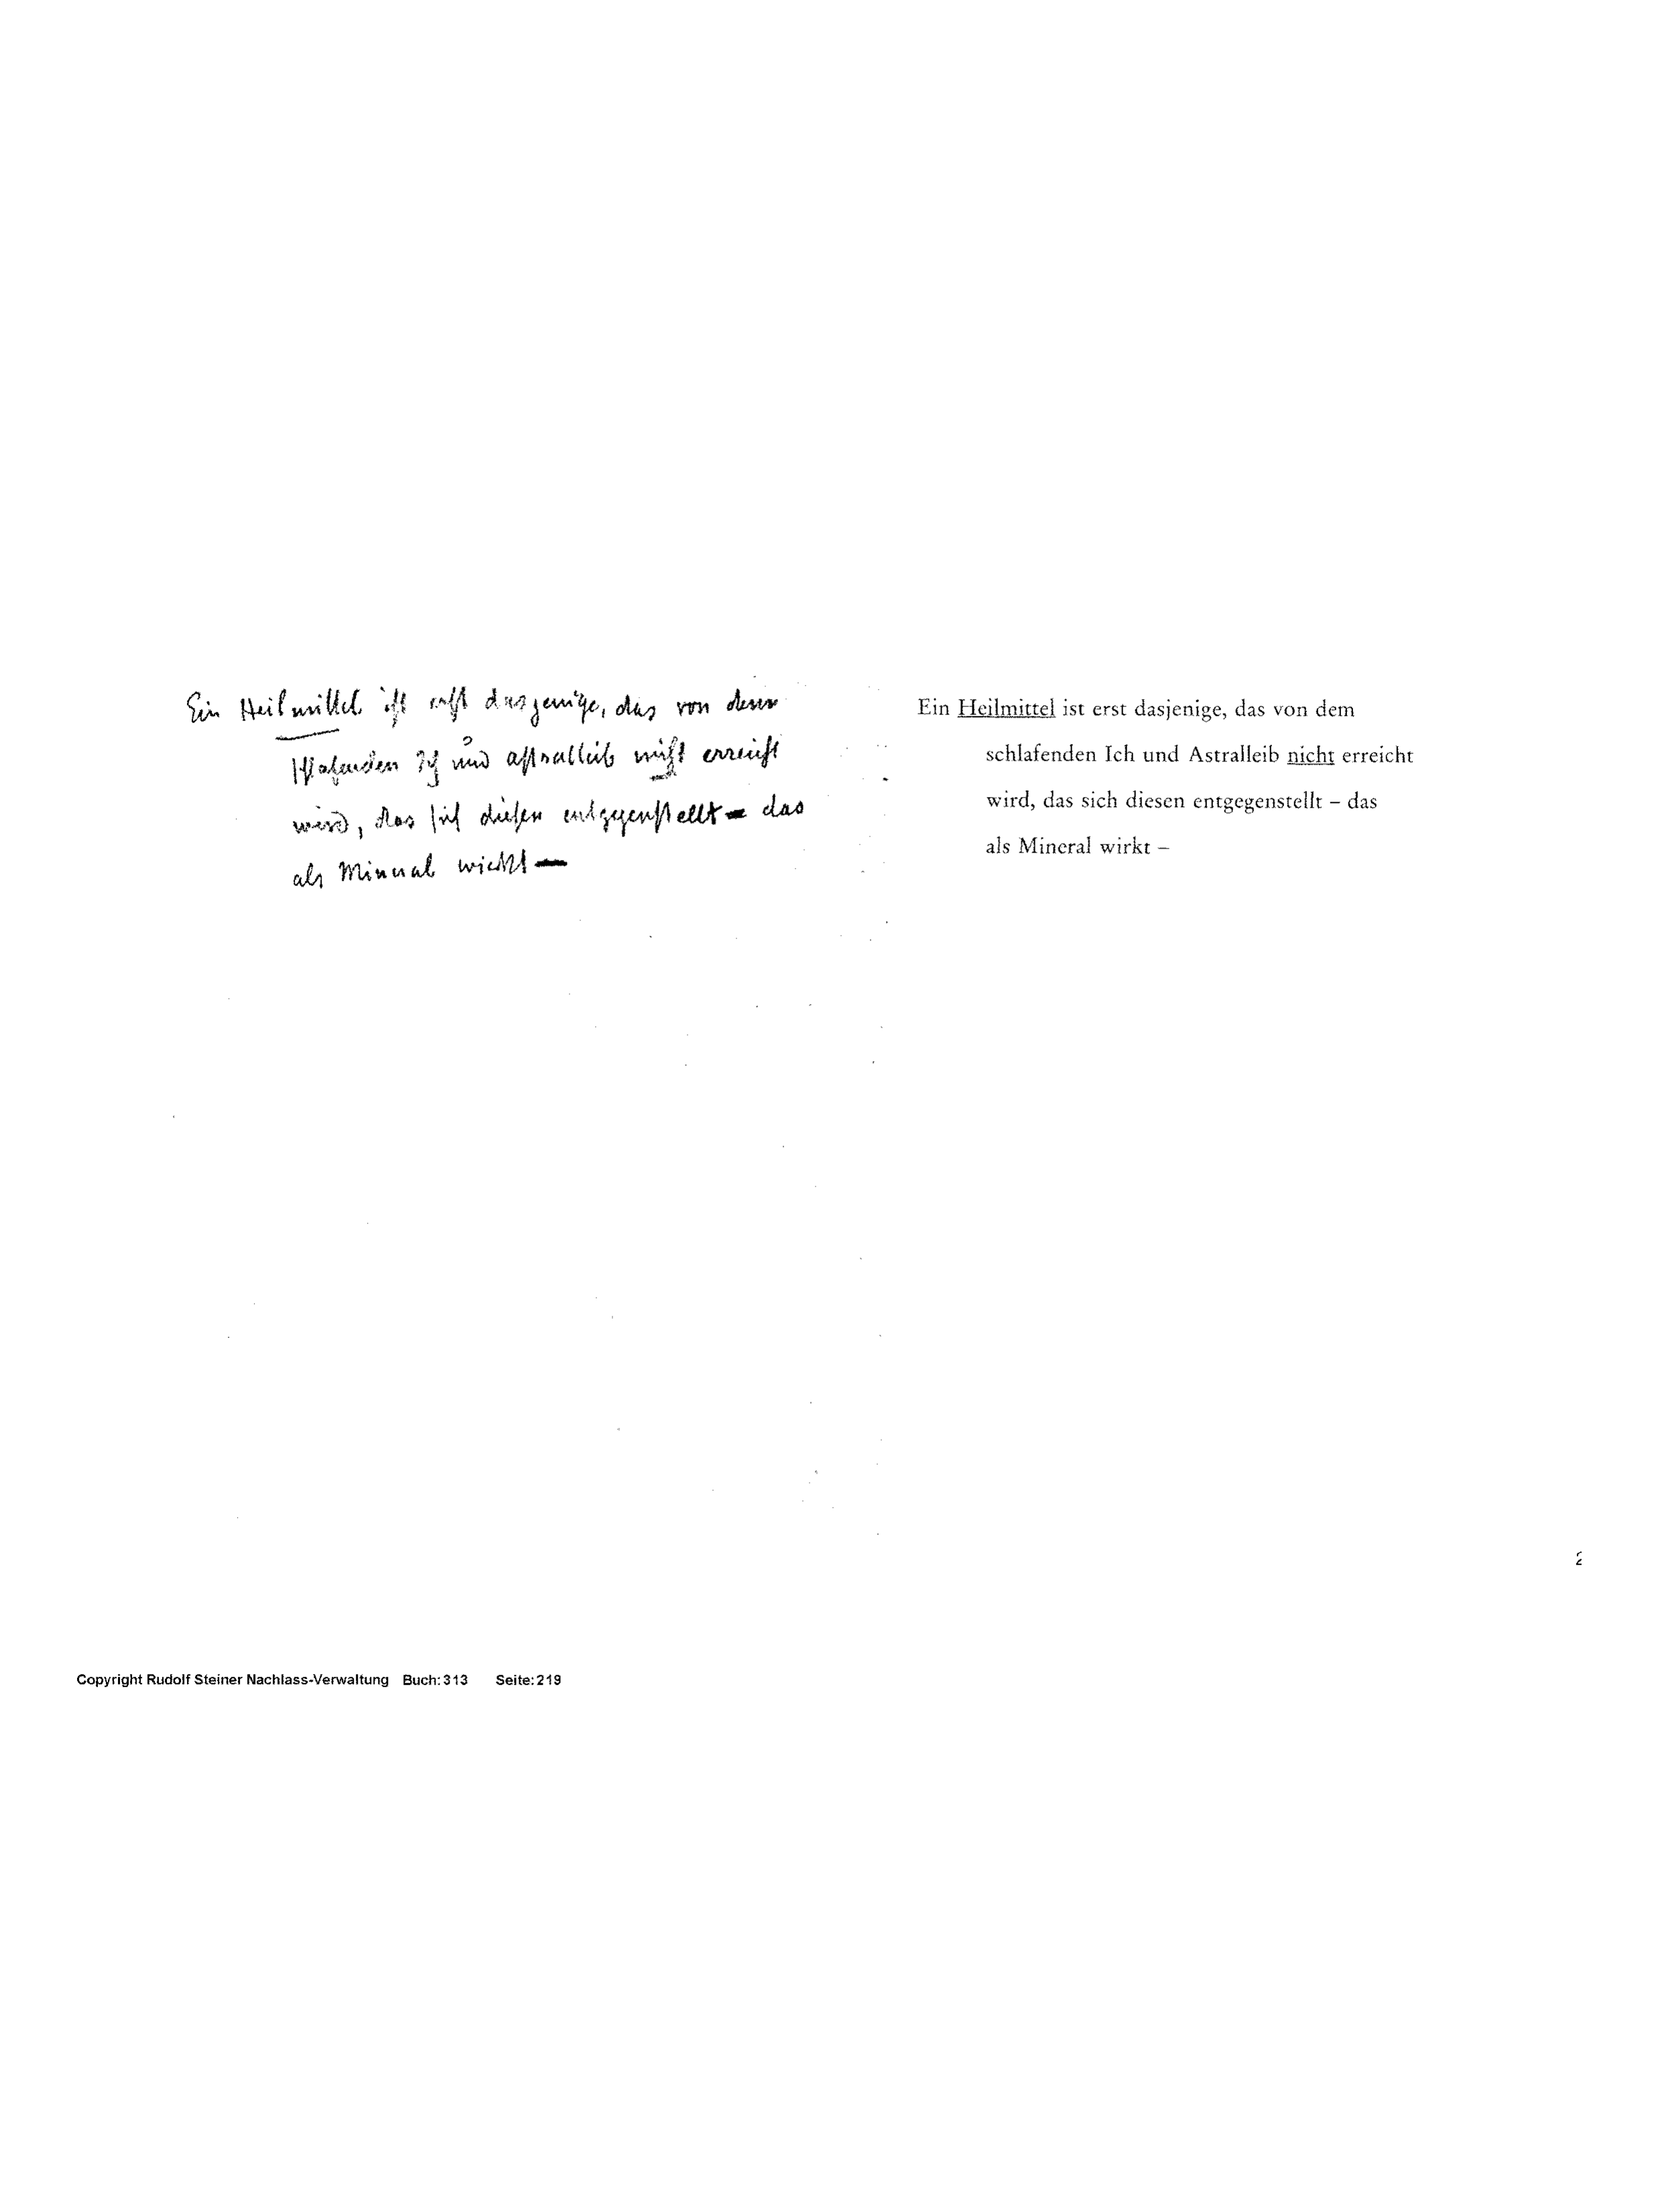 Ein Heilmittel ist erst dasjenige, das von dem
schlafenden Ich und Astralleib nicht erreicht
wird, das sich diesen entgegenstellt – das
als Mineral wirkt –
Ein Heilmittel ist erst dasjenige, das von dem
schlafenden Ich und Astralleib nicht erreicht
wird, das sich diesen entgegenstellt – das
als Mineral wirkt –
2
Copyright Rudolf Steiner Nachlass-Verwaltung Buch:313 Seite:219